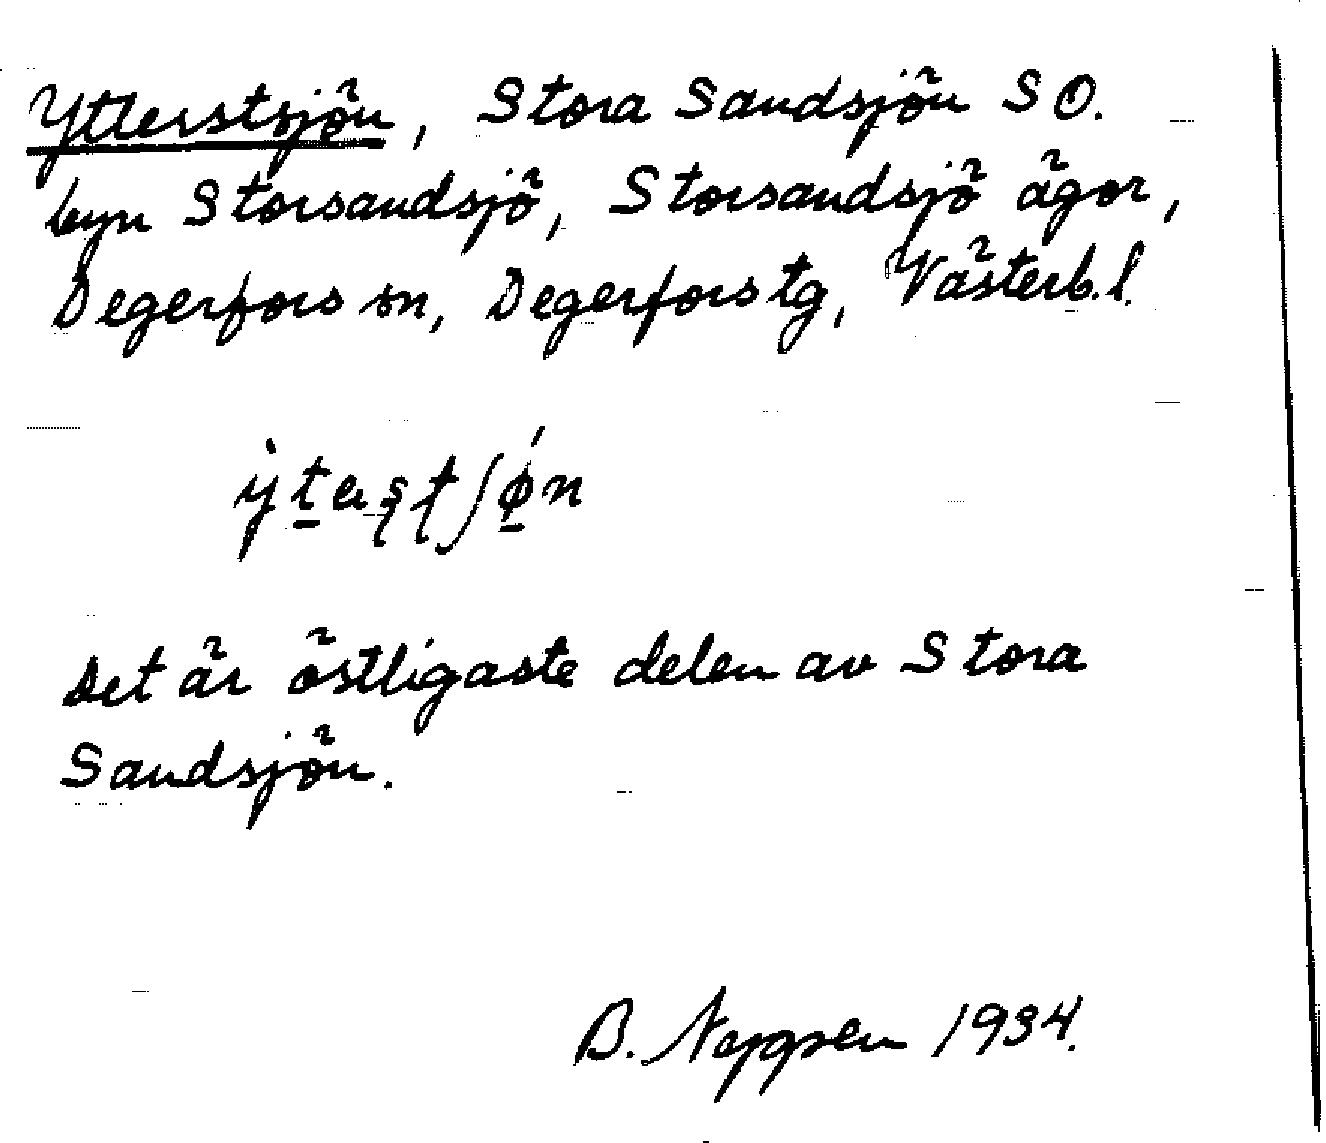 Ytterstsjön, Stora Sandsjön SO.
byn Storsandsjö, Storsandsjö ägor,
Degerfors sn, Degerfors tg, Västerb. l.
Det är östligaste delen av Stora
Sandsjön.
B. 1934.